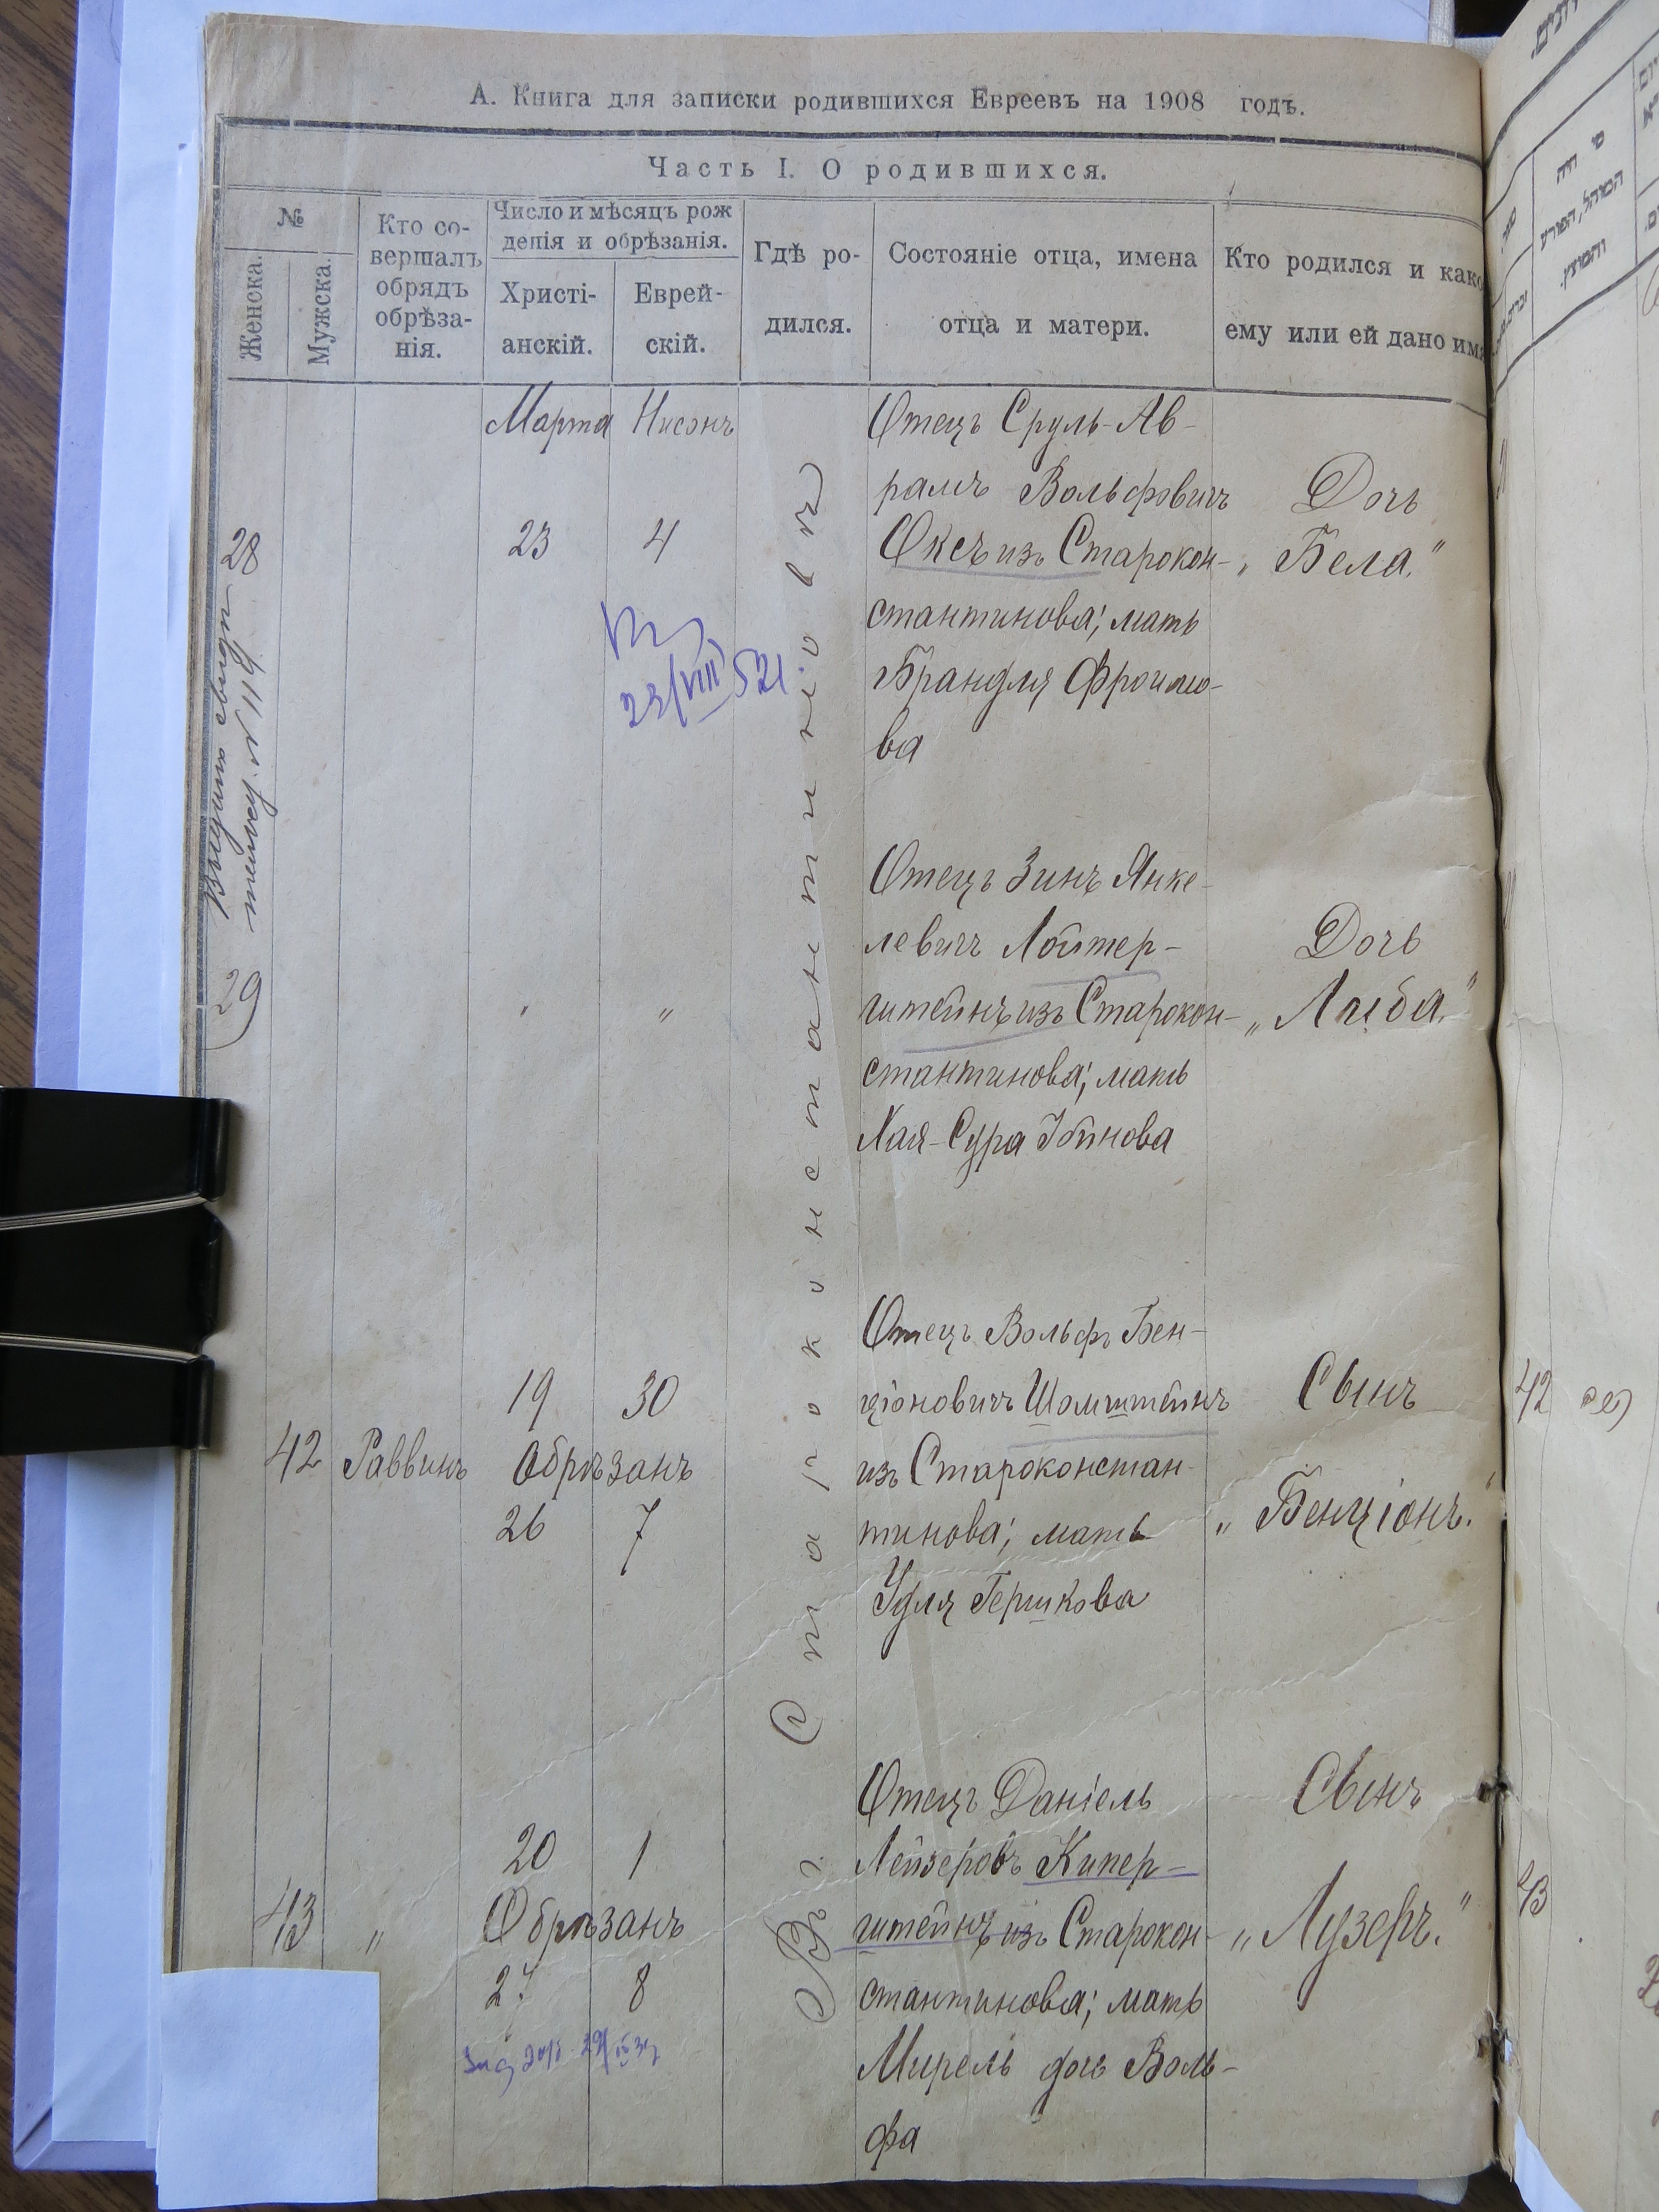 А. Книга для записки родившихся Евреевъ на 1908 годъ.
Часть I. О родившихся.
№
Женска.
Мужска.
Кто со-
вершалъ
обрядъ
обрѣза-
нія.
Число и мѣсяцъ рож
денія и обрѣзанія.
Христі-
анскій.
Еврей-
скій.
Гдѣ ро-
дился.
Состояніе отца, имена
отца и матери.
Кто родился и како
ему или ей дано им
Марта Нисонъ
28
23 4
Въ г. Староконстантиновѣ
Отецъ Сруль-Ав-
рамъ Вольфовичъ
Оксъ изъ Старокон-
стантинова; мать
Брандля Фроимо-
ва
Дочь
„Бела."
№ 118
29
" "
Отецъ Зинъ Янке-
левичъ Лойтер-
штейнъ изъ Старокон-
стантинова; мать
Хая-Сура
Дочь
42 Раввинъ
19 30
Обрѣзанъ
26 7
Отецъ Вольфъ Бен-
ціоновичъ Шомштейнъ
изъ Староконстан-
тинова; мать
Удля Гершкова
Сынъ
„Бенціонъ."
43 "
20 1
Обрѣзанъ
27 8
Отецъ Даніель
Лейзеровъ Кипер-
штейнъ изъ Старокон-
стантинова; мать
Мирель дочь Воль-
фа
Сынъ
„Лузеръ."
42
43